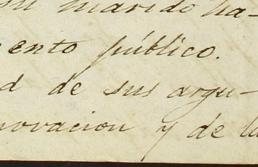 mi marido ha-
ento público.
d de sus argu-
novacion y de la